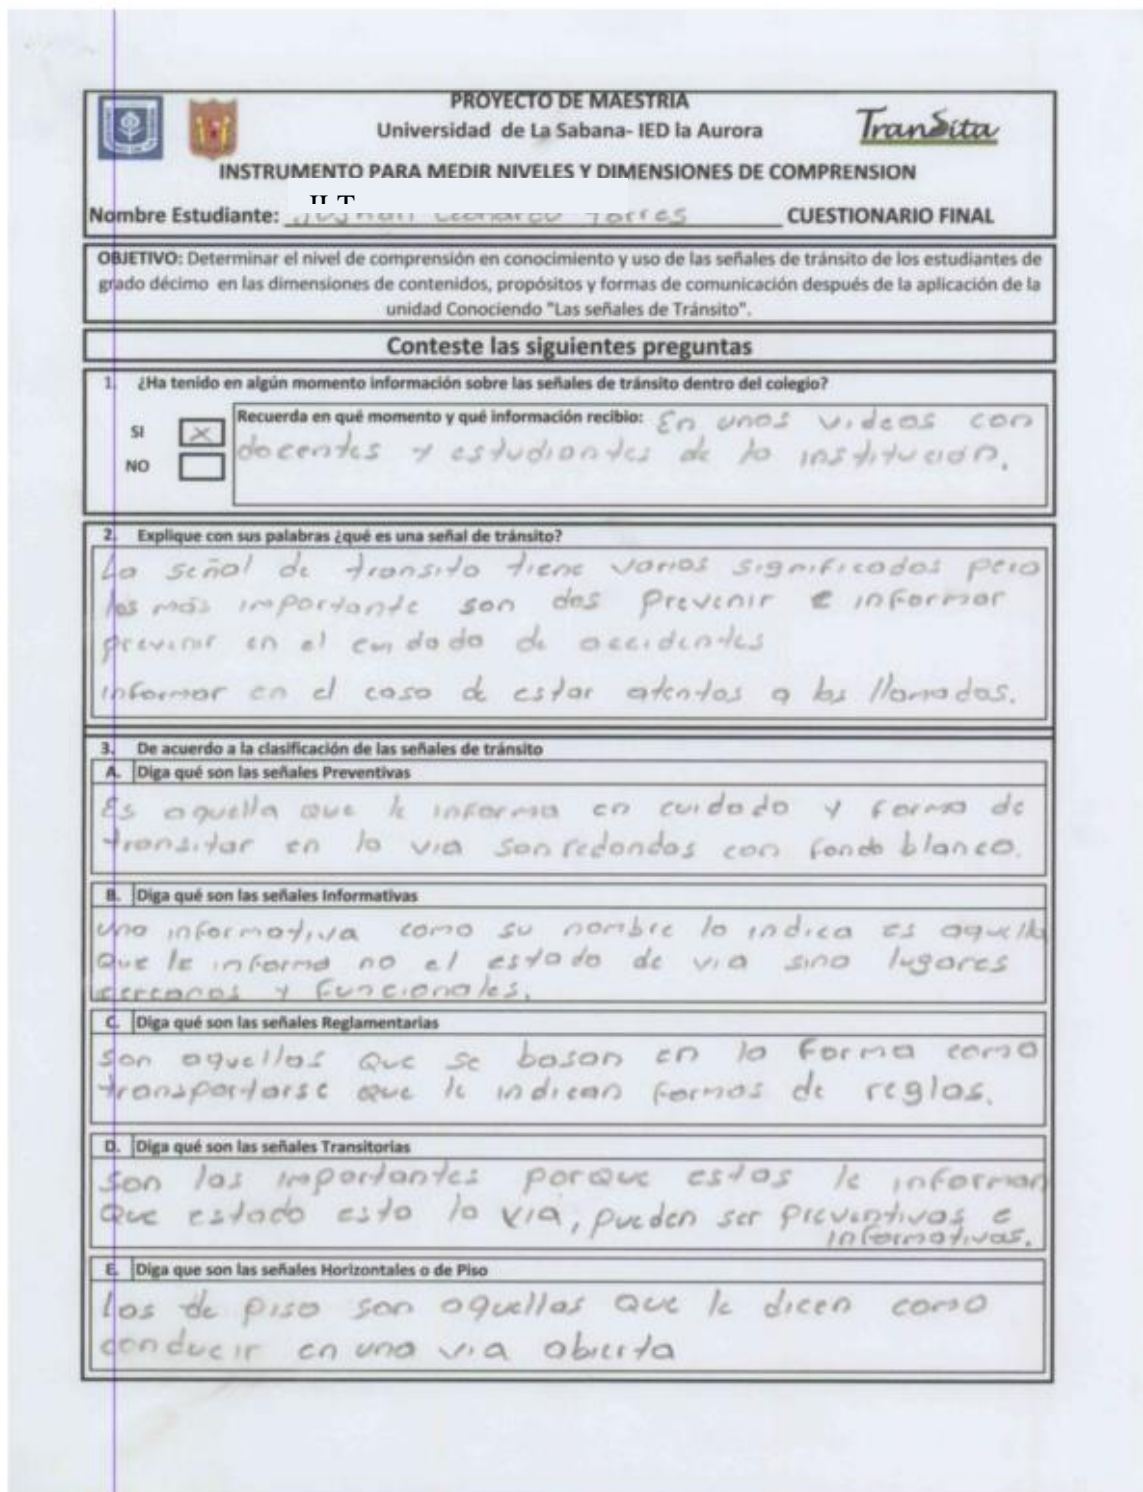 PROYECTO DE MAESTRIA
Universidad de La Sabana- IED la Aurora
TranSita
INSTRUMENTO PARA MEDIR NIVELES Y DIMENSIONES DE COMPRENSION
Nombre Estudiante: Leonardo Torres CUESTIONARIO FINAL
OBJETIVO: Determinar el nivel de comprensión en conocimiento y uso de las señales de tránsito de los estudiantes de
grado décimo en las dimensiones de contenidos, propósitos y formas de comunicación después de la aplicación de la
unidad Conociendo "Las señales de Tránsito".
Conteste las siguientes preguntas
1. ¿Ha tenido en algún momento información sobre las señales de tránsito dentro del colegio?
SI X
NO
Recuerda en qué momento y qué información recibio: En unos videos con
docentes y estudiantes de la institución.
2. Explique con sus palabras ¿qué es una señal de tránsito?
La señal de transito tiene varios significados pero
los más importante son dos Prevenir e informar
prevenir en el cuidado de accidentes
informar en el caso de estar atentos a los llamados.
3. De acuerdo a la clasificación de las señales de tránsito
A. Diga qué son las señales Preventivas
Es aquella que le informa en cuidado y forma de
transitar en la via son redondas con fondo blanco.
B. Diga qué son las señales Informativas
una informativa como su nombre lo indica es aquella
que le informa no el estado de via sino lugares
cercanos y funcionales.
C. Diga qué son las señales Reglamentarias
son aquellas que se basan en la forma como
transportarse que le indican formas de reglas.
D. Diga qué son las señales Transitorias
son las importantes porque estas le informan
que estado esta la via, pueden ser preventivas e
informativas.
E. Diga que son las señales Horizontales o de Piso
Las de piso son aquellas que le dicen como
conducir en una via abierta